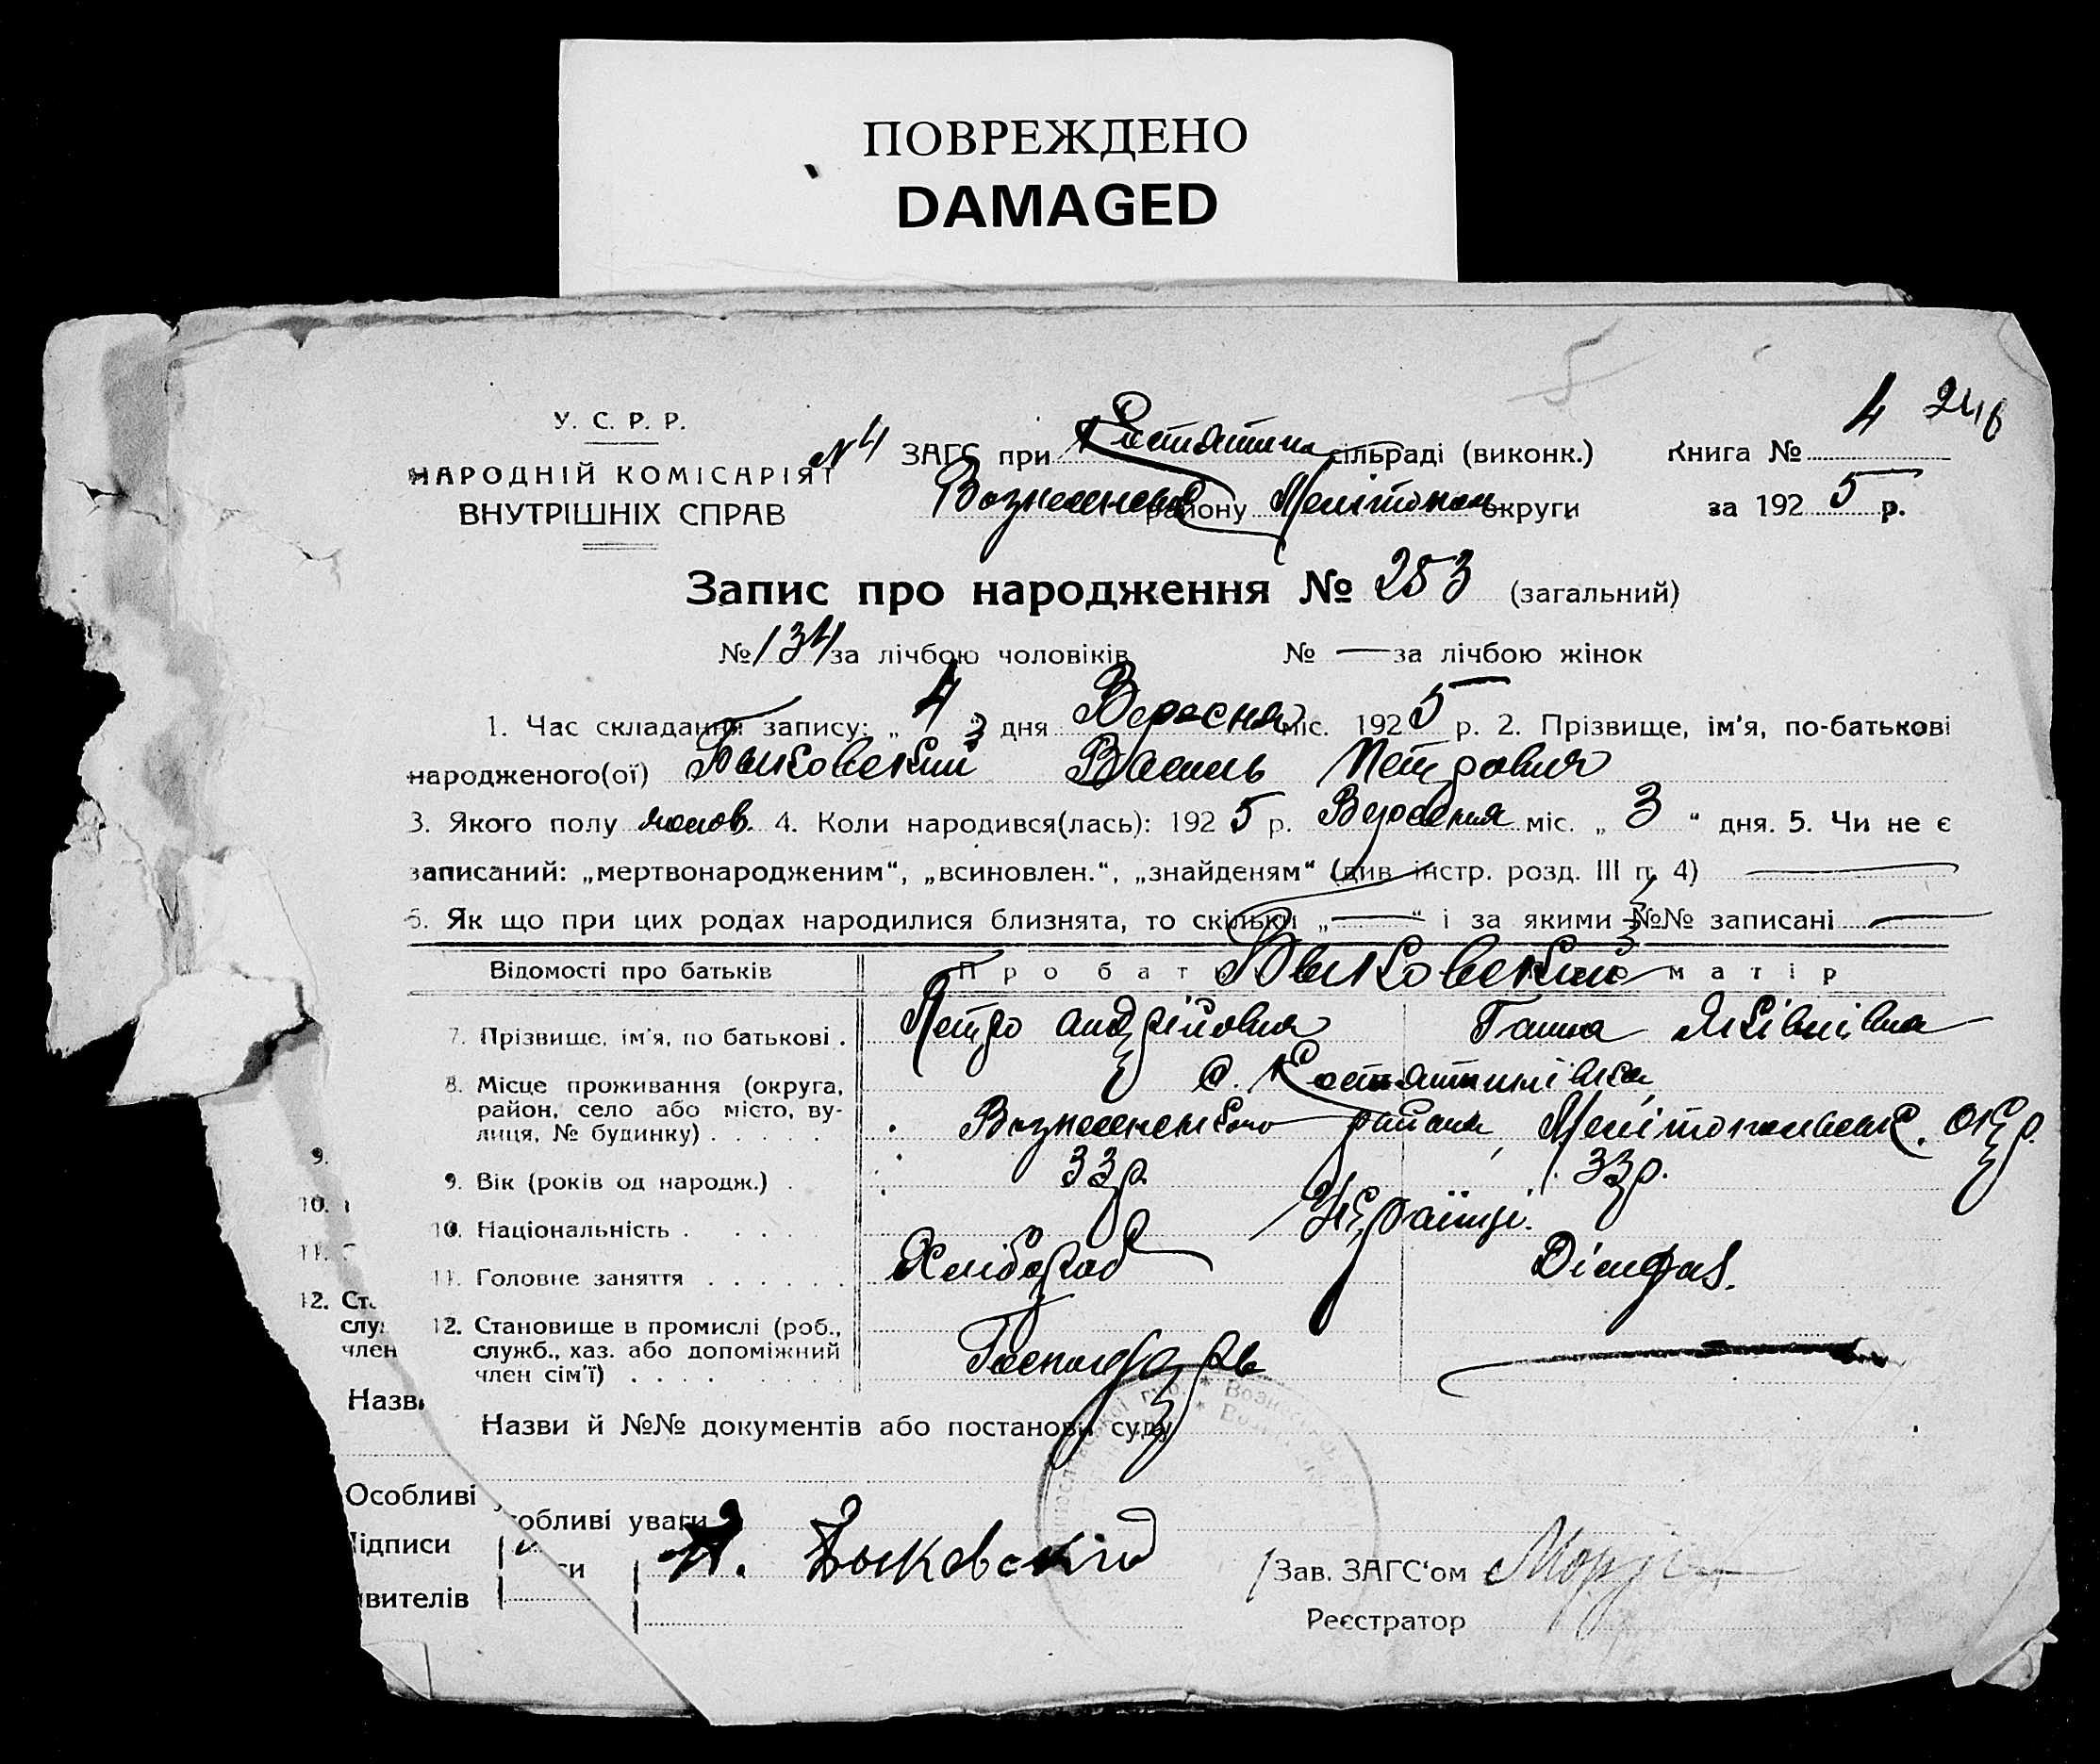 ПОВРЕЖДЕНО
DAMAGED
5
У. С. Р. Р.
НАРОДНІЙ КОМІСАРІЯТ
ВНУТРІШНІХ СПРАВ
№4 ЗАГС при Костятин сільраді (виконк.) Книга № 4 246
Вознесенськ району Мелітопол округи за 1925 р.
Запис про народження № 253 (загальний)
№ 134 за лічбою чоловіків № — за лічбою жінок
1. Час складання запису: „ 4 “ дня Вересня міс. 1925 р. 2. Прізвище, ім'я, по-батькові
народженого(ої) Быковский Василь Петрович
3. Якого полу чолов. 4. Коли народився(лась): 1925 р. Вересня міс. „ 3 “ дня. 5. Чи не є
записаний: „мертвонародженим“, „всиновлен.“, „знайденям“ (див інстр. розд. III п. 4) —
6. Як що при цих родах народилися близнята, то скільки „—“ і за якими №№ записані —
Відомості про батьків Про бать Быковский матір
7. Прізвище, ім'я, по батькові . Петро Андрійович Ганна Яківнівна
8. Місце проживання (округа, с. Костятинівка
район, село або місто, ву-
лиця, № будинку) . . . . . Вознесенського району, Мелітопольськ. окр.
9. Вік (років од народж.) . 33 р. 33 р.
10. Національність . . . . . Українці.
11. Головне заняття . . . . . . Хлібороб
12. Становище в промислі (роб.,
служб., хаз. або допоміжний
член сім'ї) . . . . . . . . . Господарь —
Назви й №№ документів або постанови суду
обливі уваги
си П. Быковскій
Зав. ЗАГС'ом
Реєстратор
9.
10.
11.
12. Ст
служ
член
Назви
Особливі
ідписи
явителів